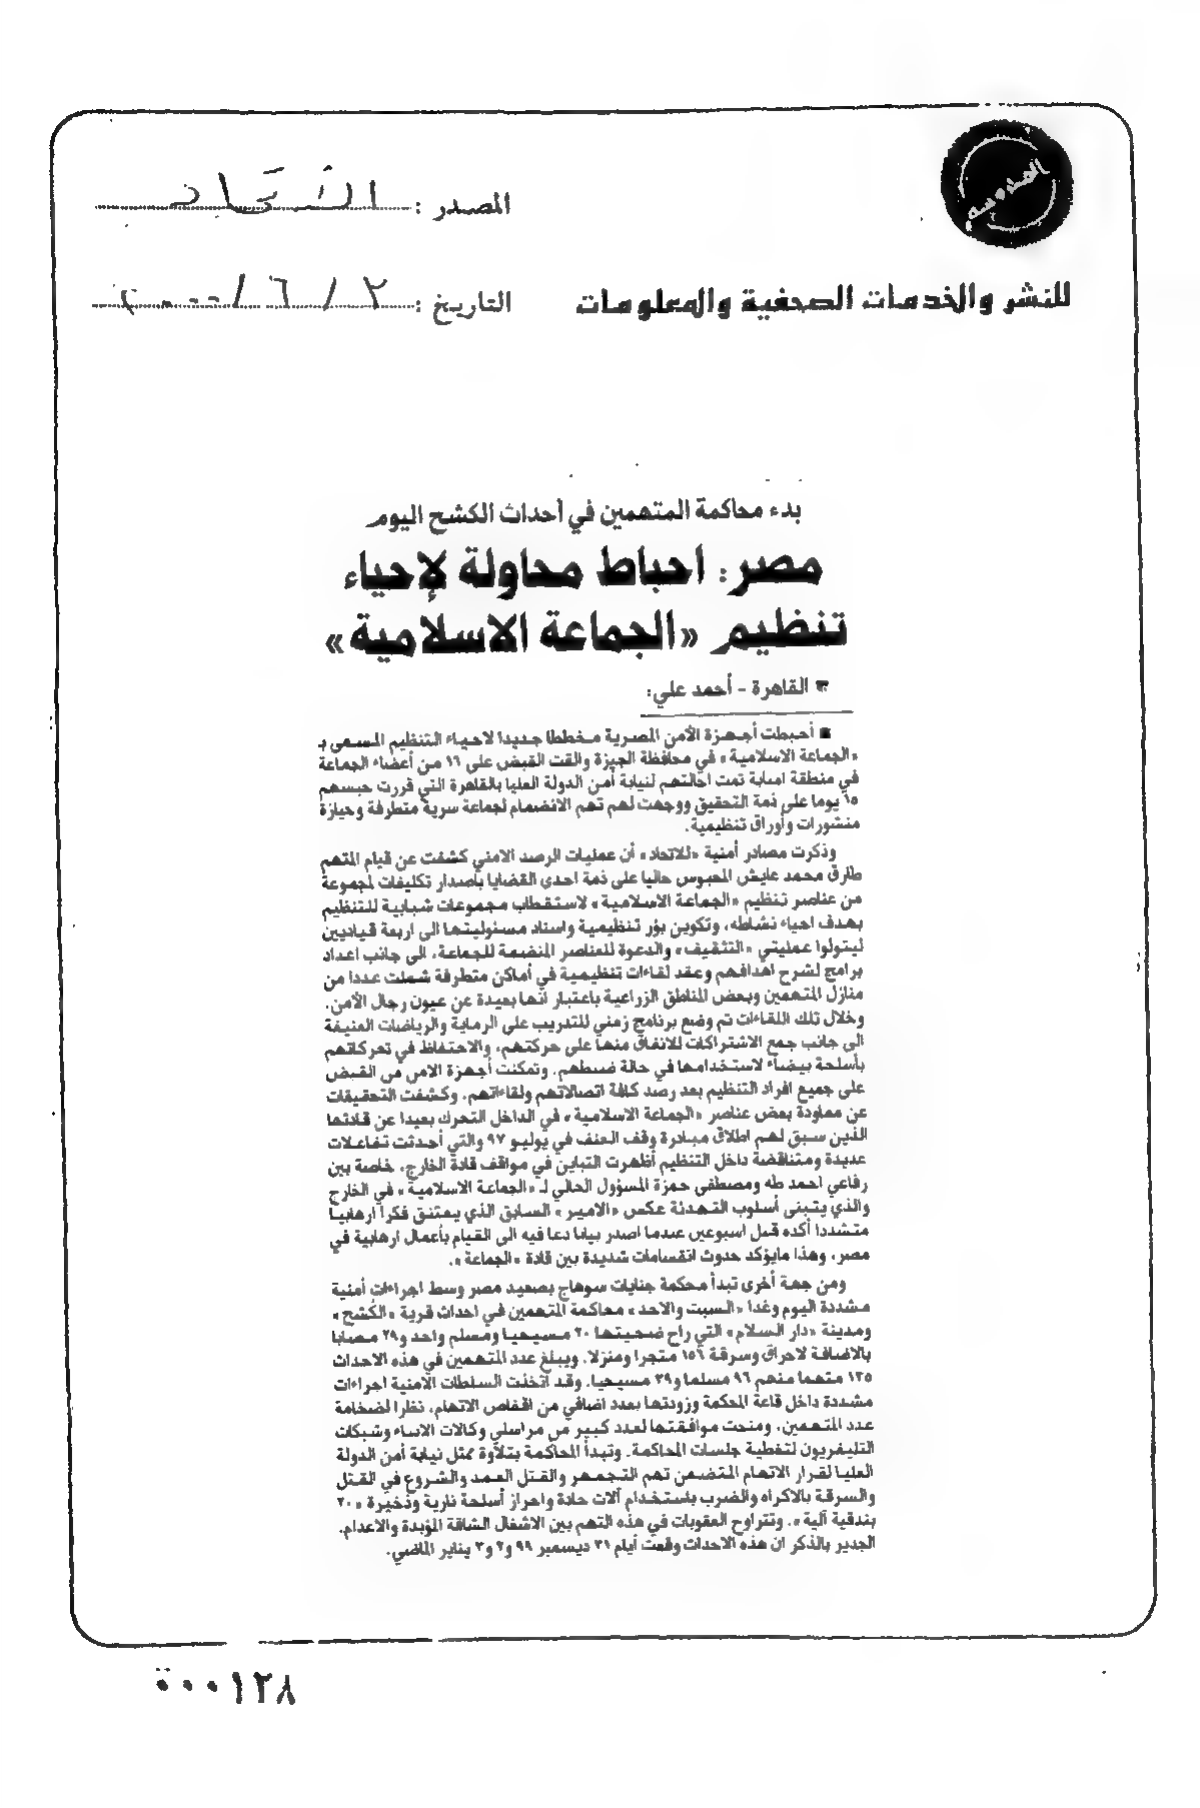 المصدر : الاتحاد
التاريخ : ٢ / ٦ / ٢٠٠٠
للنشر والخدمات الصحفية والمعلومات
بدء محاكمة المتهمين في أحداث الكشح اليوم
مصر: احباط محاولة لإحياء
تنظيم «الجماعة الاسلامية»
القاهرة - أحمد علي:
أحبطت أجهزة الأمن المصرية مخططا جديدا لاحياء التنظيم المسمى بـ
«الجماعة الاسلامية» في محافظة الجيزة والقت القبض على ١٦ من أعضاء الجماعة
في منطقة امبابة تمت احالتهم لنيابة أمن الدولة العليا بالقاهرة التي قررت حبسهم
١٥ يوما على ذمة التحقيق ووجهت لهم تهم الانضمام لجماعة سرية متطرفة وحيازة
منشورات وأوراق تنظيمية.
وذكرت مصادر أمنية «للاتحاد» أن عمليات الرصد الامني كشفت عن قيام المتهم
طارق محمد عايش المحبوس حاليا على ذمة احدى القضايا باصدار تكليفات لمجموعة
من عناصر تنظيم «الجماعة الاسلامية» لاستقطاب مجموعات شبابية للتنظيم
بهدف احياء نشاطه، وتكوين بؤر تنظيمية واسناد مسئوليتها الى اربعة قياديين
ليتولوا عمليتي «التثقيف» والدعوة للعناصر المنضمة للجماعة، الى جانب اعداد
برامج لشرح اهدافهم وعقد لقاءات تنظيمية في أماكن متطرفة شملت عددا من
منازل المتهمين وبعض المناطق الزراعية باعتبار أنها بعيدة عن عيون رجال الأمن.
وخلال تلك اللقاءات تم وضع برنامج زمني للتدريب على الرماية والرياضات العنيفة
الى جانب جمع الاشتراكات للانفاق منها على حركتهم، والاحتفاظ في تحركاتهم
بأسلحة بيضاء لاستخدامها في حالة ضبطهم. وتمكنت أجهزة الامن من القبض
على جميع افراد التنظيم بعد رصد كافة اتصالاتهم ولقاءاتهم. وكشفت التحقيقات
عن معاودة بعض عناصر «الجماعة الاسلامية» في الداخل التحرك بعيدا عن قادتها
الذين سبق لهم اطلاق مبادرة وقف العنف في يوليو ٩٧ والتي أحدثت تفاعلات
عديدة ومتناقضة داخل التنظيم أظهرت التباين في مواقف قادة الخارج، خاصة بين
رفاعي احمد طه ومصطفى حمزة المسؤول الحالي لـ «الجماعة الاسلامية» في الخارج
والذي يتبنى أسلوب التهدئة عكس «الامير» السابق الذي يعتنق فكرا ارهابيا
متشددا أكده قبل اسبوعين عندما اصدر بيانا دعا فيه الى القيام بأعمال ارهابية في
مصر، وهذا مايؤكد حدوث انقسامات شديدة بين قادة «الجماعة».
ومن جهة أخرى تبدأ محكمة جنايات سوهاج بصعيد مصر وسط اجراءات أمنية
مشددة اليوم وغدا «السبت والاحد» محاكمة المتهمين في احداث قرية «الكشح»
ومدينة «دار السلام» التي راح ضحيتها ٢٠ مسيحيا ومسلم واحد و٣٩ مصابا
بالاضافة لاحراق وسرقة ١٥٦ متجرا ومنزلا. ويبلغ عدد المتهمين في هذه الاحداث
١٣٥ متهما منهم ٩٦ مسلما و٣٩ مسيحيا. وقد اتخذت السلطات الامنية اجراءات
مشددة داخل قاعة المحكمة وزودتها بعدد اضافي من اقفاص الاتهام، نظرا لضخامة
عدد المتهمين. ومنحت موافقتها لعدد كبير من مراسلي وكالات الانباء وشبكات
التليفزيون لتغطية جلسات المحاكمة. وتبدأ المحاكمة بتلاوة ممثل نيابة أمن الدولة
العليا لقرار الاتهام المتضمن تهم التجمهر والقتل العمد والشروع في القتل
والسرقة بالاكراه والضرب باستخدام آلات حادة واحراز أسلحة نارية وذخيرة «٢٠
بندقية آلية». وتتراوح العقوبات في هذه التهم بين الاشغال الشاقة المؤبدة والاعدام.
الجدير بالذكر ان هذه الاحداث وقعت أيام ٣١ ديسمبر ٩٩ و٢ و٣ يناير الماضي.
٠٠٠١٢٨